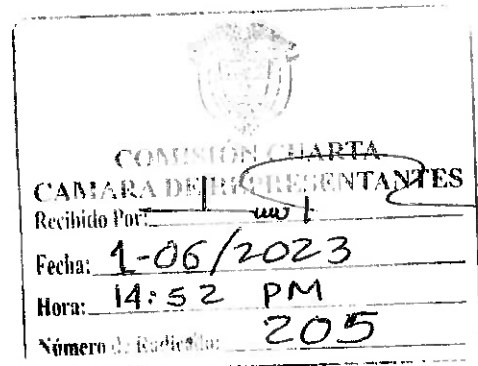 COMISIÓN CUARTA
CAMARA DE REPRESENTANTES
Recibido Por:
Fecha: 1-06/2023
Hora: 14:52 PM
Número de Radicado: 205